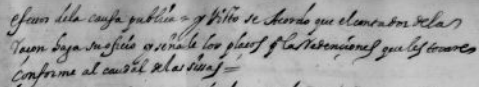 efecon dela causa publica = y Visto se Acordo que el contador dela
Raçon haga su oficio y señale los plaços y las redenciones que les tocare
Conforme al caudal de las sissas =